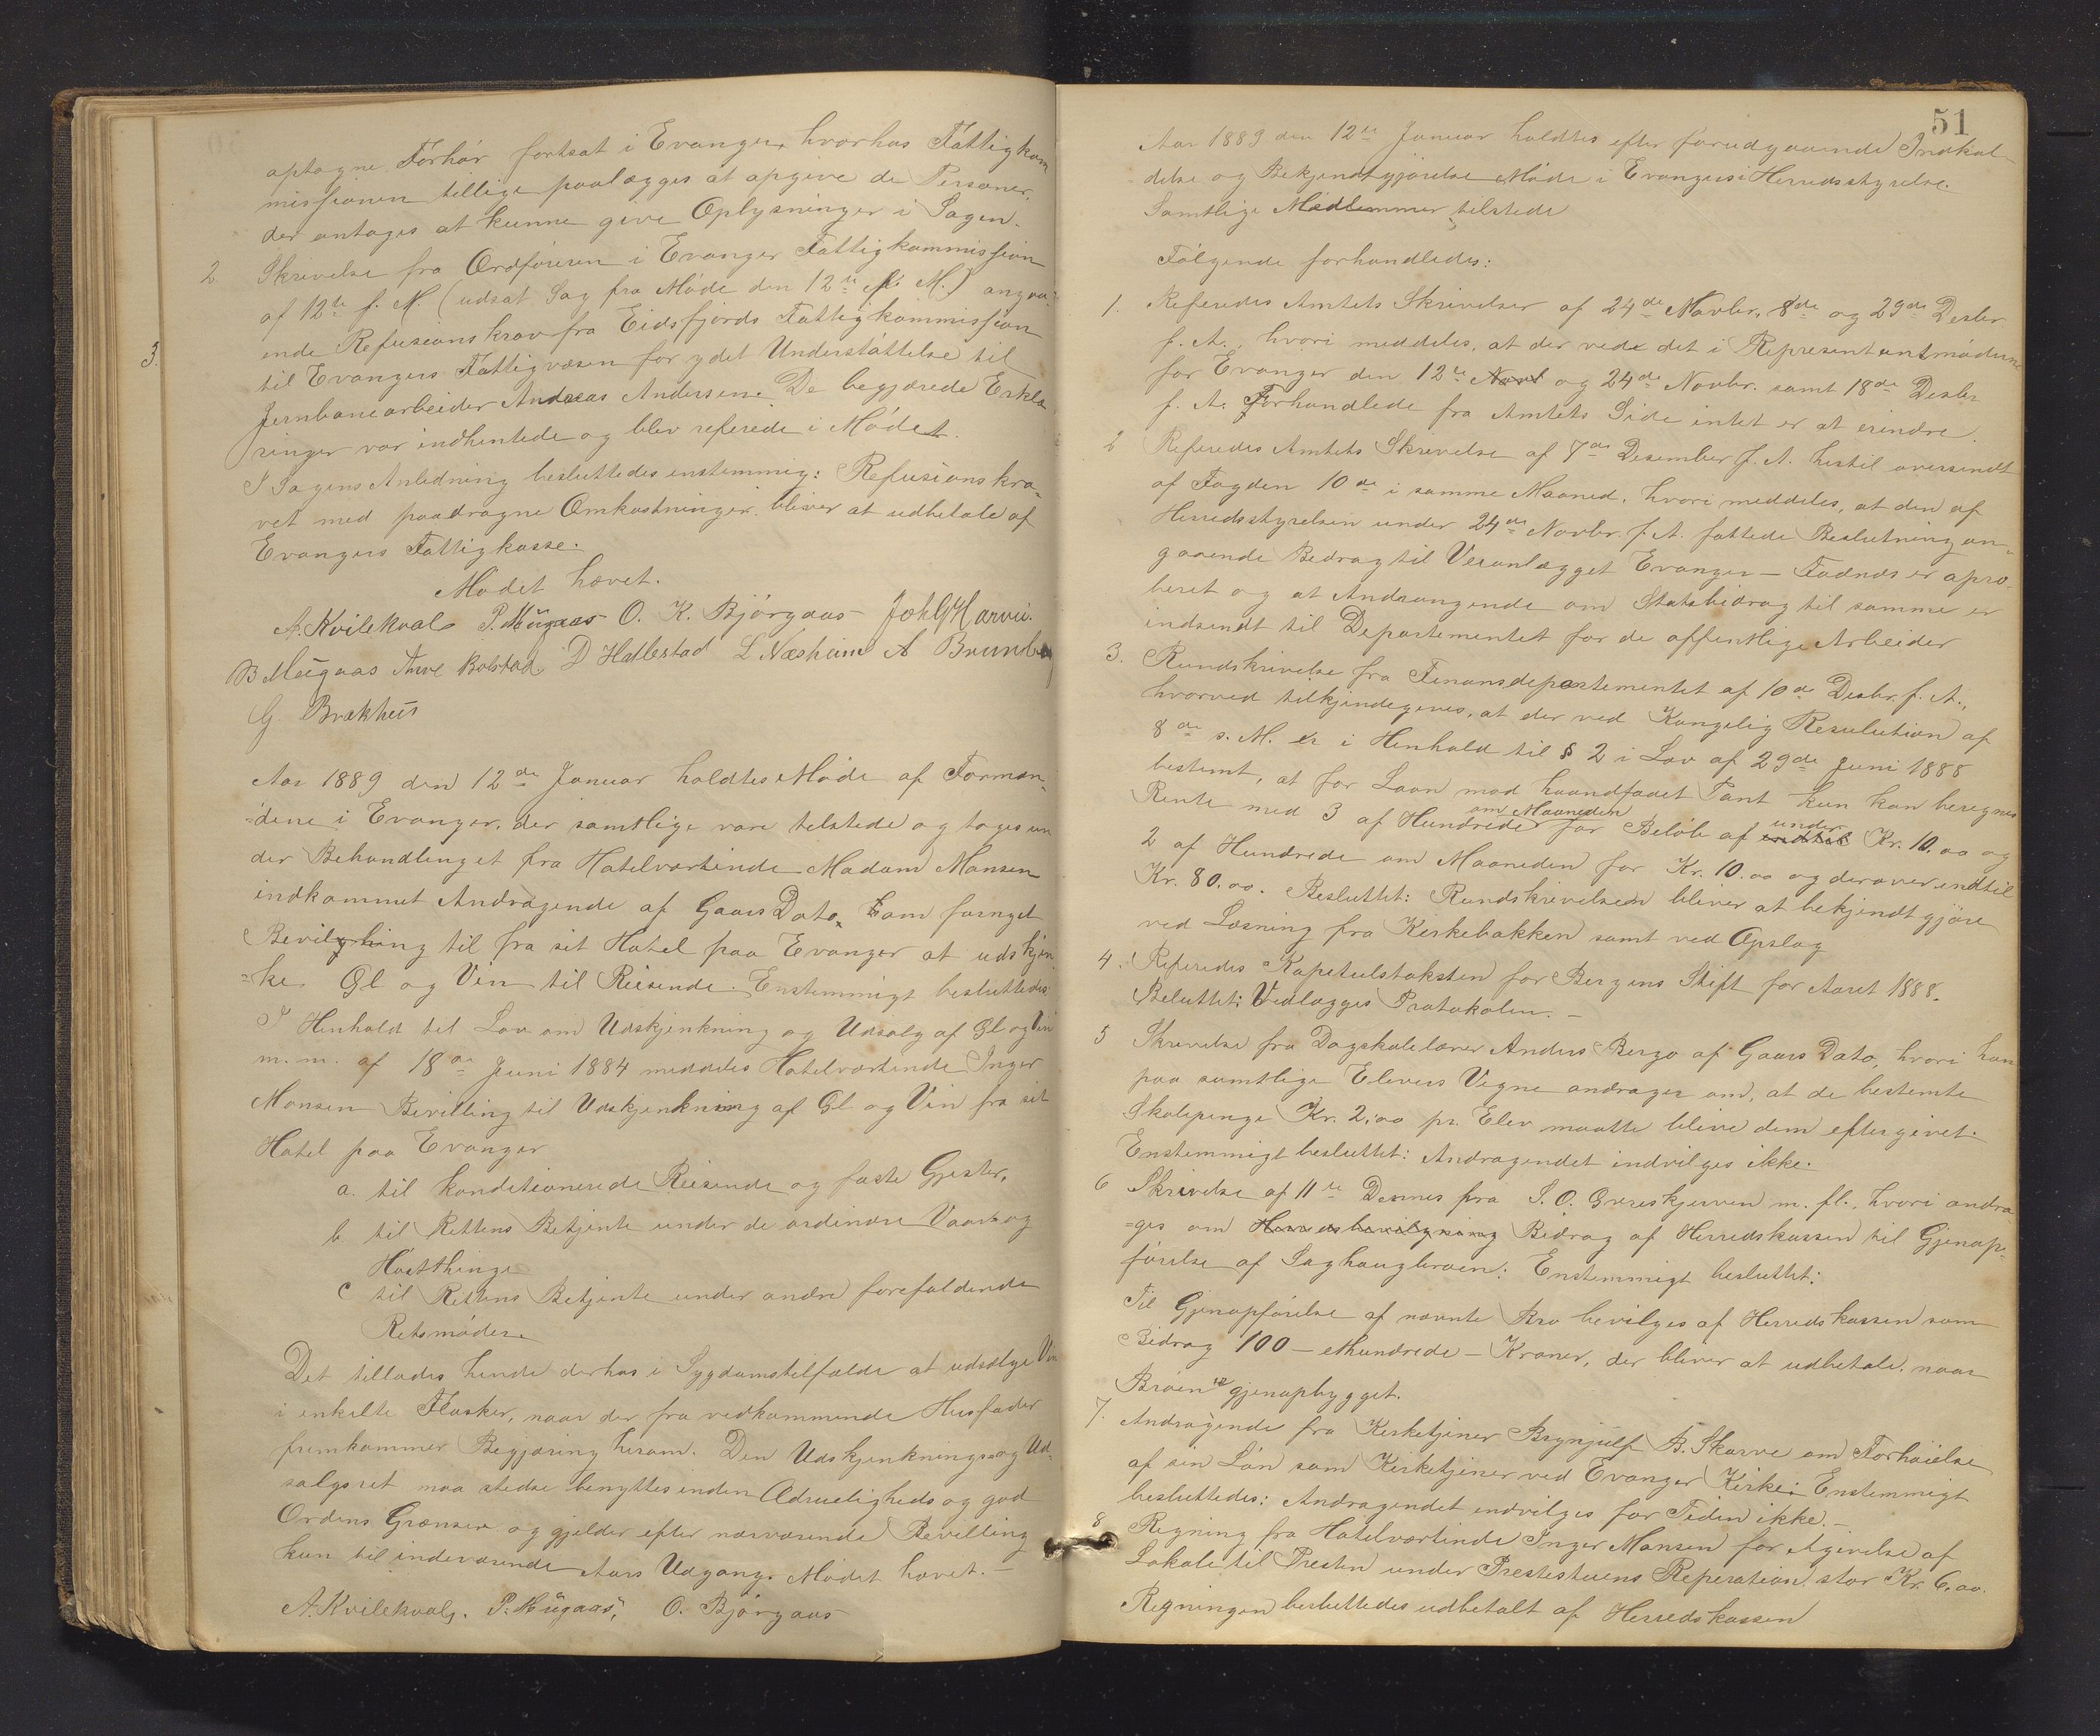 optagne Forhør fortsat i Evanger, hvorhos Fattigkom
missionen tillige paalægges at opgive de Personer,
der antages at kunne give Oplysninger i Sagen.
2. Skrivelse fra Ordføreren i Evanger Fattigkommission
af 12te f. M. (udsat Sag fra Møde den 12te f. M.) angaa-
ende Refusionskrav fra Eidsfjords Fattigkommission
3.
til Evangers Fattigvæsen for ydet Understøttelse til
Jernbanearbeider Andreas Andersen. De begjærede Erklæ
ringer var indhentede og blev referede i Mødet.
I Sagens Anledning besluttedes enstemmig: Refusionskra-
vet med paadragne Omkostninger bliver at udbetale af
Evangers Fattigkasse.
Mødet hævet.
A. Kvilekval P. Mügaas O. K. Bjørgaas Joh G Harvei.
B Mügaas Arve Bolstad D Hallestad L Næsheim A Brunborg
G. Brækhus
Aar 1889 den 12de Januar holdtes Møde af Forman-
dene i Evanger, der samtlige vare tilstede og toges un
der Behandling et fra Hotelværtinde Madam Monsen
indkommet Andragende af Gaars Dato, om fornyet
Bevilgning til fra sit Hotel paa Evanger at udskjen
=ke Øl og Vin til Reisende. Enstemmigt besluttedes:
I Henhold til Lov om Udskjenkning og Udsalg af Øl og Vin
m. m. af 18de Juni 1884 meddeles Hotelværtinde Inger
Monsen Bevilling til Udskjenkning af Øl og Vin fra sit
Hotel paa Evanger
a. til konditionerede Reisende og faste Gjester,
b til Rettens Betjente under de ordinære Vaar og
Høstthinge
c til Rettens Betjente under andre forefaldende
Retsmøder.
Det tillades hende derhos i Sygdomstilfælde at udsælge Vin
i enkelte Flasker, naar der fra vedkommende Husfader
fremkommer Begjæring herom. Den Udskjenknings og Ud-
salgsret maa stedse benyttes inden Ædrueligheds og god
Ordens Grænser og gjelder efter nærværende Bevilling
kun til indeværende Aars Udgang. Mødet hævet. –
A. Kvilekval, P. Mügaas, O. Bjørgaas
51
Aar 1889 den 12te Januar holdtes efter forudgaaende Indkal-
delse og Bekjendtgjørelse Møde i Evangers Herredsstyrelse.
Samtlige Medlemmer tilstede
Følgende forhandledes:
1. Referedes Amtets Skrivelser af 24de Novbr, 8de og 29de Desbr
f. A., hvori meddeles, at der ved det i Representantmøderne
for Evanger den 12te Novb og 24de Novbr. samt 18de Desbr
f. A. Forhandlede fra Amtets Side intet er at erindre.
2 Referedes Amtets Skrivelse af 7de Desember f. A. hertil oversendt
af Fogden 10de i samme Maaned, hvori meddeles, at den af
Herredsstyrelsen under 24de Novbr. f. A. fattede Beslutning an-
gaaende Bedrag til Veranlægget Evanger – Fadnæs er apro-
beret og at Andragende om Statsbidrag til samme er
indsendt til Departementet for de offentlige Arbeider
3. Rundskrivelse fra Finansdepartementet af 10de Desbr. f. A.,
hvorved tilkjendegives, at der ved Kongelig Resolution af
8de s. M. er i Henhold til § 2 i Lov af 29de Juni 1888
bestemt, at for Laan mod haandfaaet Pant kun kan beregnes
Rente med 3 af Hundrede om Maaneden for Beløb af indtil under Kr. 10.00 og
2 af Hundrede om Maaneden for Kr. 10.00 og derover indtil
Kr. 80.00. Besluttet: Rundskrivelsen bliver at bekjendtgjøre
ved Læsning fra Kirkebakken samt ved Opslag
4. Referedes Kapitelstaksten for Bergens Stift for Aaret 1888.
Beluttet: Vedlægges Protokolen. –
5 Skrivelse fra Dagskolelærer Anders Bergo af Gaars Dato, hvori han
paa samtlige Elevers Vegne andrager om, at de bestemte
Skolepenge Kr. 2,00 pr. Elev maatte blive dem eftergivet.
Enstemmigt besluttet: Andragendet indvilges ikke.
6 Skrivelse af 11te Dennes fra S. O. Grøreskjerven m. fl., hvori andra
=ges om Herredsbevilgning Bidrag af Herredskassen til Gjenop-
førelse af Saghaugbroen: Enstemmigt besluttet:
Til Gjenopførelse af nævnte Bro bevilges af Herredskassen som
Bidrag 100 – ethundrede – Kroner, der bliver at udbetale, naar
Broen er gjenopbygget.
7. Andragende fra Kirketjener Brynjulf B. Skorve om Forhøielse
af sin Løn som Kirketjener ved Evanger Kirke: Enstemmigt
besluttedes: Andragendet indvilges for Tiden ikke. –
8 Regning fra Hotelværtinde Inger Monsen for Agivelse af
Lokale til Presten under Prestestuens Reperation stor Kr. 6,00.
Regningen besluttedes udbetalt af Herredskassen